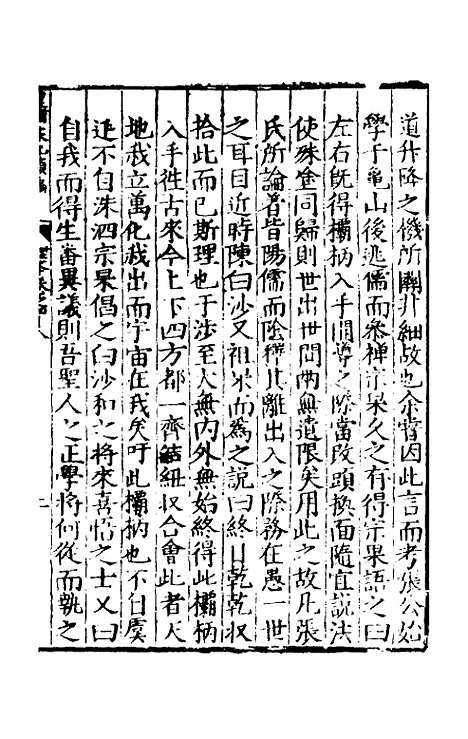 道升降之機所關非細故也余嘗因此言而考張公始
學于龜山後逃儒而叅禪宗杲久之有得宗杲語之曰
左右旣得欛柄入手開導之際當改頭換面隨宜說法
使殊途同歸則世出世間兩無遺限矣用此之故凡張
氏所論著皆陽儒而陰釋其離出入之際務在愚一世
之耳目近時陳白沙又祖杲而爲之說曰終日乾乾収
拾此而已斯理也于涉至大無内外無始終得此欛柄
入手徃古來今上下四方都一齊結紐収合會此者天
地我立萬化我出而宇宙在我矣吁此欛柄也不自虞
廷不自洙泗宗杲倡之白沙和之將來喜悟之士又曰
自我而得生畨異議則吾聖人之正學將何從而執之